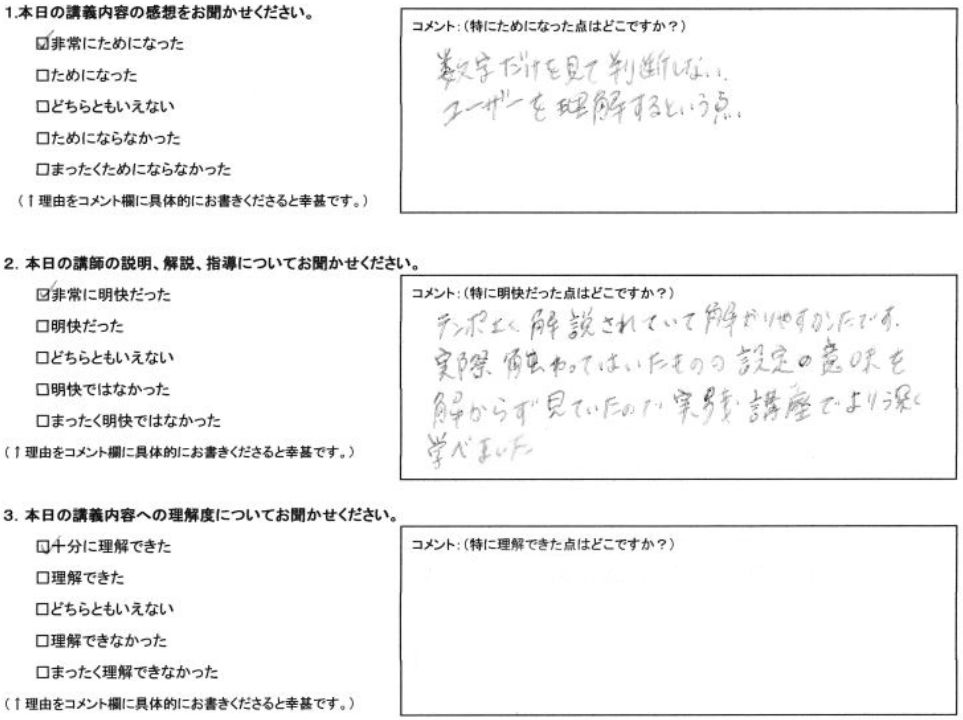 1.本日の講義内容の感想をお聞かせください。
☑非常にためになった
□ためになった
□どちらともいえない
□ためにならなかった
□まったくためにならなかった
(↑理由をコメント欄に具体的にお書きくださると幸甚です。)
コメント:(特にためになった点はどこですか?)
数字だけを見て判断しない、
ユーザーを理解するという点、
2. 本日の講師の説明、解説、指導についてお聞かせください。
☑非常に明快だった
□明快だった
□どちらともいえない
□明快ではなかった
□まったく明快ではなかった
(↑理由をコメント欄に具体的にお書きくださると幸甚です。)
コメント:(特に明快だった点はどこですか?)
テンポよく解説されていて解かりやすかったです。
実際触わってはいたものの設定の意味を
解からず見ていたので実践講座でより深く
学べました
3. 本日の講義内容への理解度についてお聞かせください。
☑十分に理解できた
□理解できた
□どちらともいえない
□理解できなかった
□まったく理解できなかった
(↑理由をコメント欄に具体的にお書きくださると幸甚です。)
コメント:(特に理解できた点はどこですか?)